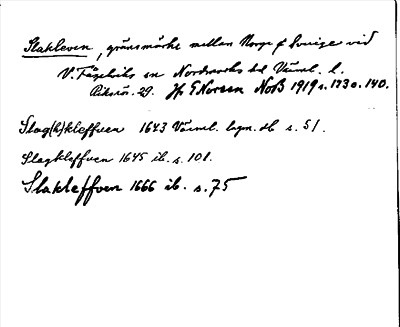 Slakleven, gränsmärke mellan Norge o Sverige vid
V. Fågelvik sn Nordmarks hd Värml. l.
Riksrös. 29. Jfr E Noreen NoB 1919 s. 133 o. 140.
Slag(h)kleffven 1643 Värml. lagm. db s. 51.
Slagkleffven 1645 ib. s. 101.
Slakleffven 1666 ib. s. 75